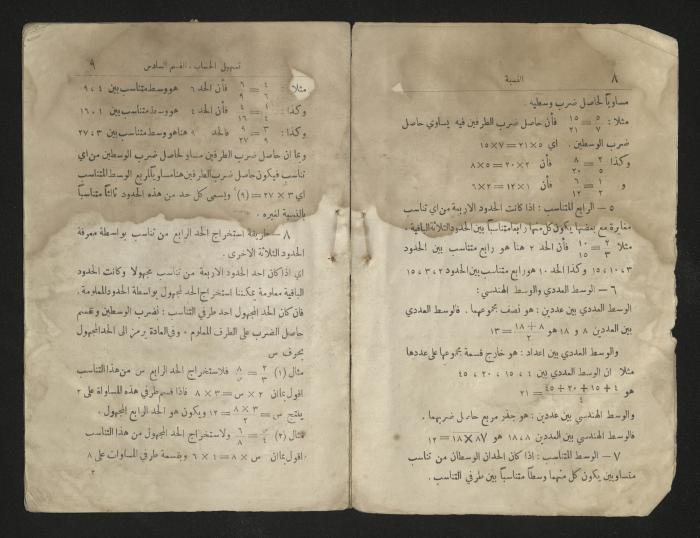 ٨ النسبة
مساوياً لحاصل ضرب وسطيه .
مثلا : ٥/٧ = ١٥/٢١ فأن حاصل ضرب الطرفين فيه يساوي حاصل
ضرب الوسطين . اي ٥×٢١ = ٧×١٥
وكذا ٢/٥ = ٨/٢٠ فأن ٢×٢٠ = ٥×٨
و ١/٢ = ٦/١٢ فأن ١×١٢ = ٢×٦
٥ — الرابع المتناسب : اذا كانت الحدود الاربعة من اي تناسب
مغايرة مع بعضها يكون كل منها رابعا متناسباً بين الحدود الثلاثة الباقية .
مثلا ٢/٣ = ١٠/١٥ فأن الحد ٢ هنا هو رابع متناسب بين الحدود
٣ ، ١٠ ، ١٥ وكذا الحد ١٠ هو رابع متناسب بين الحدود ٢ ، ٣ ، ١٥
٦ — الوسط العددي والوسط الهندسي :
الوسط العددي بين عددين : هو نصف مجموعهما . فالوسط العددي
بين العددين ٨ و ١٨ هو ٨ + ١٨/٢ = ١٣
والوسط العددي بين اعداد : هو خارج قسمة مجموعها على عددها
مثلا ان الوسط العددي بين ٤ ، ١٥ ، ٢٠ ، ٤٥
هو ٤ + ١٥ + ٢٠ + ٤٥/٤ = ٢١
والوسط الهندسي بين عددين : هو جذر مربع حاصل ضربهما .
فالوسط الهندسي بين العددين ٨ ، ١٨ هو √٨×١٨ = ١٢
٧ — الوسط المتناسب : اذا كان الحدان الوسطان من تناسب
متساويين يكون كل منهما وسطاً متناسباً بين طرفي التناسب .
تسهيل الحساب . القسم السادس ٩
مثلا : ٤/٦ = ٦/٩ فأن الحد ٦ هو وسط متناسب بين ٤ ، ٩
وكذا : ١/٤ = ٤/١٦ فأن الحد ٤ هو وسط متناسب بين ١ ، ١٦
وكذا : ٣/٩ = ٩/٢٧ فالحد ٩ هنا هو وسط متناسب بين ٣ ، ٢٧
وبما ان حاصل ضرب الطرفين مساو لحاصل ضرب الوسطين من اي
تناسب فيكون حاصل ضرب الطرفين هنا مساوياً لمربع الوسط المتناسب
اي ٣ × ٢٧ = (٩)٢ ويسمى كل حد من هذه الحدود ثالثاً متناسباً
بالنسبة لغيره .
٨ — طريقة استخراج الحد الرابع من تناسب بواسطة معرفة
الحدود الثلاثة الاخرى .
اي اذا كان احد الحدود الاربعة من تناسب مجهولا وكانت الحدود
الباقية معلومة يمكننا استخراج الحد المجهول بواسطة الحدود المعلومة .
فان كان الحد المجهول احد طرفي التناسب : نضرب الوسطين ونقسم
حاصل الضرب على الطرف المعلوم . وفي العادة يرمز الى الحد المجهول
بحرف س
مثال (١) ٢/٣ = ٨/س فلاستخراج الحد الرابع س من هذا التناسب
اقول بما ان ٢ × س = ٣ × ٨ فاذا قسم طرفي هذه المساواة على ٢
ينتج س = ٣×٨/٢ = ١٢ ويكون هو الحد الرابع المجهول .
مثال (٢) س/٤ = ٦/٨ ولاستخراج الحد المجهول من هذا التناسب
اقول بما ان س × ٨ = ٤ × ٦ وبقسمة طرفي المساوات على ٨
٢